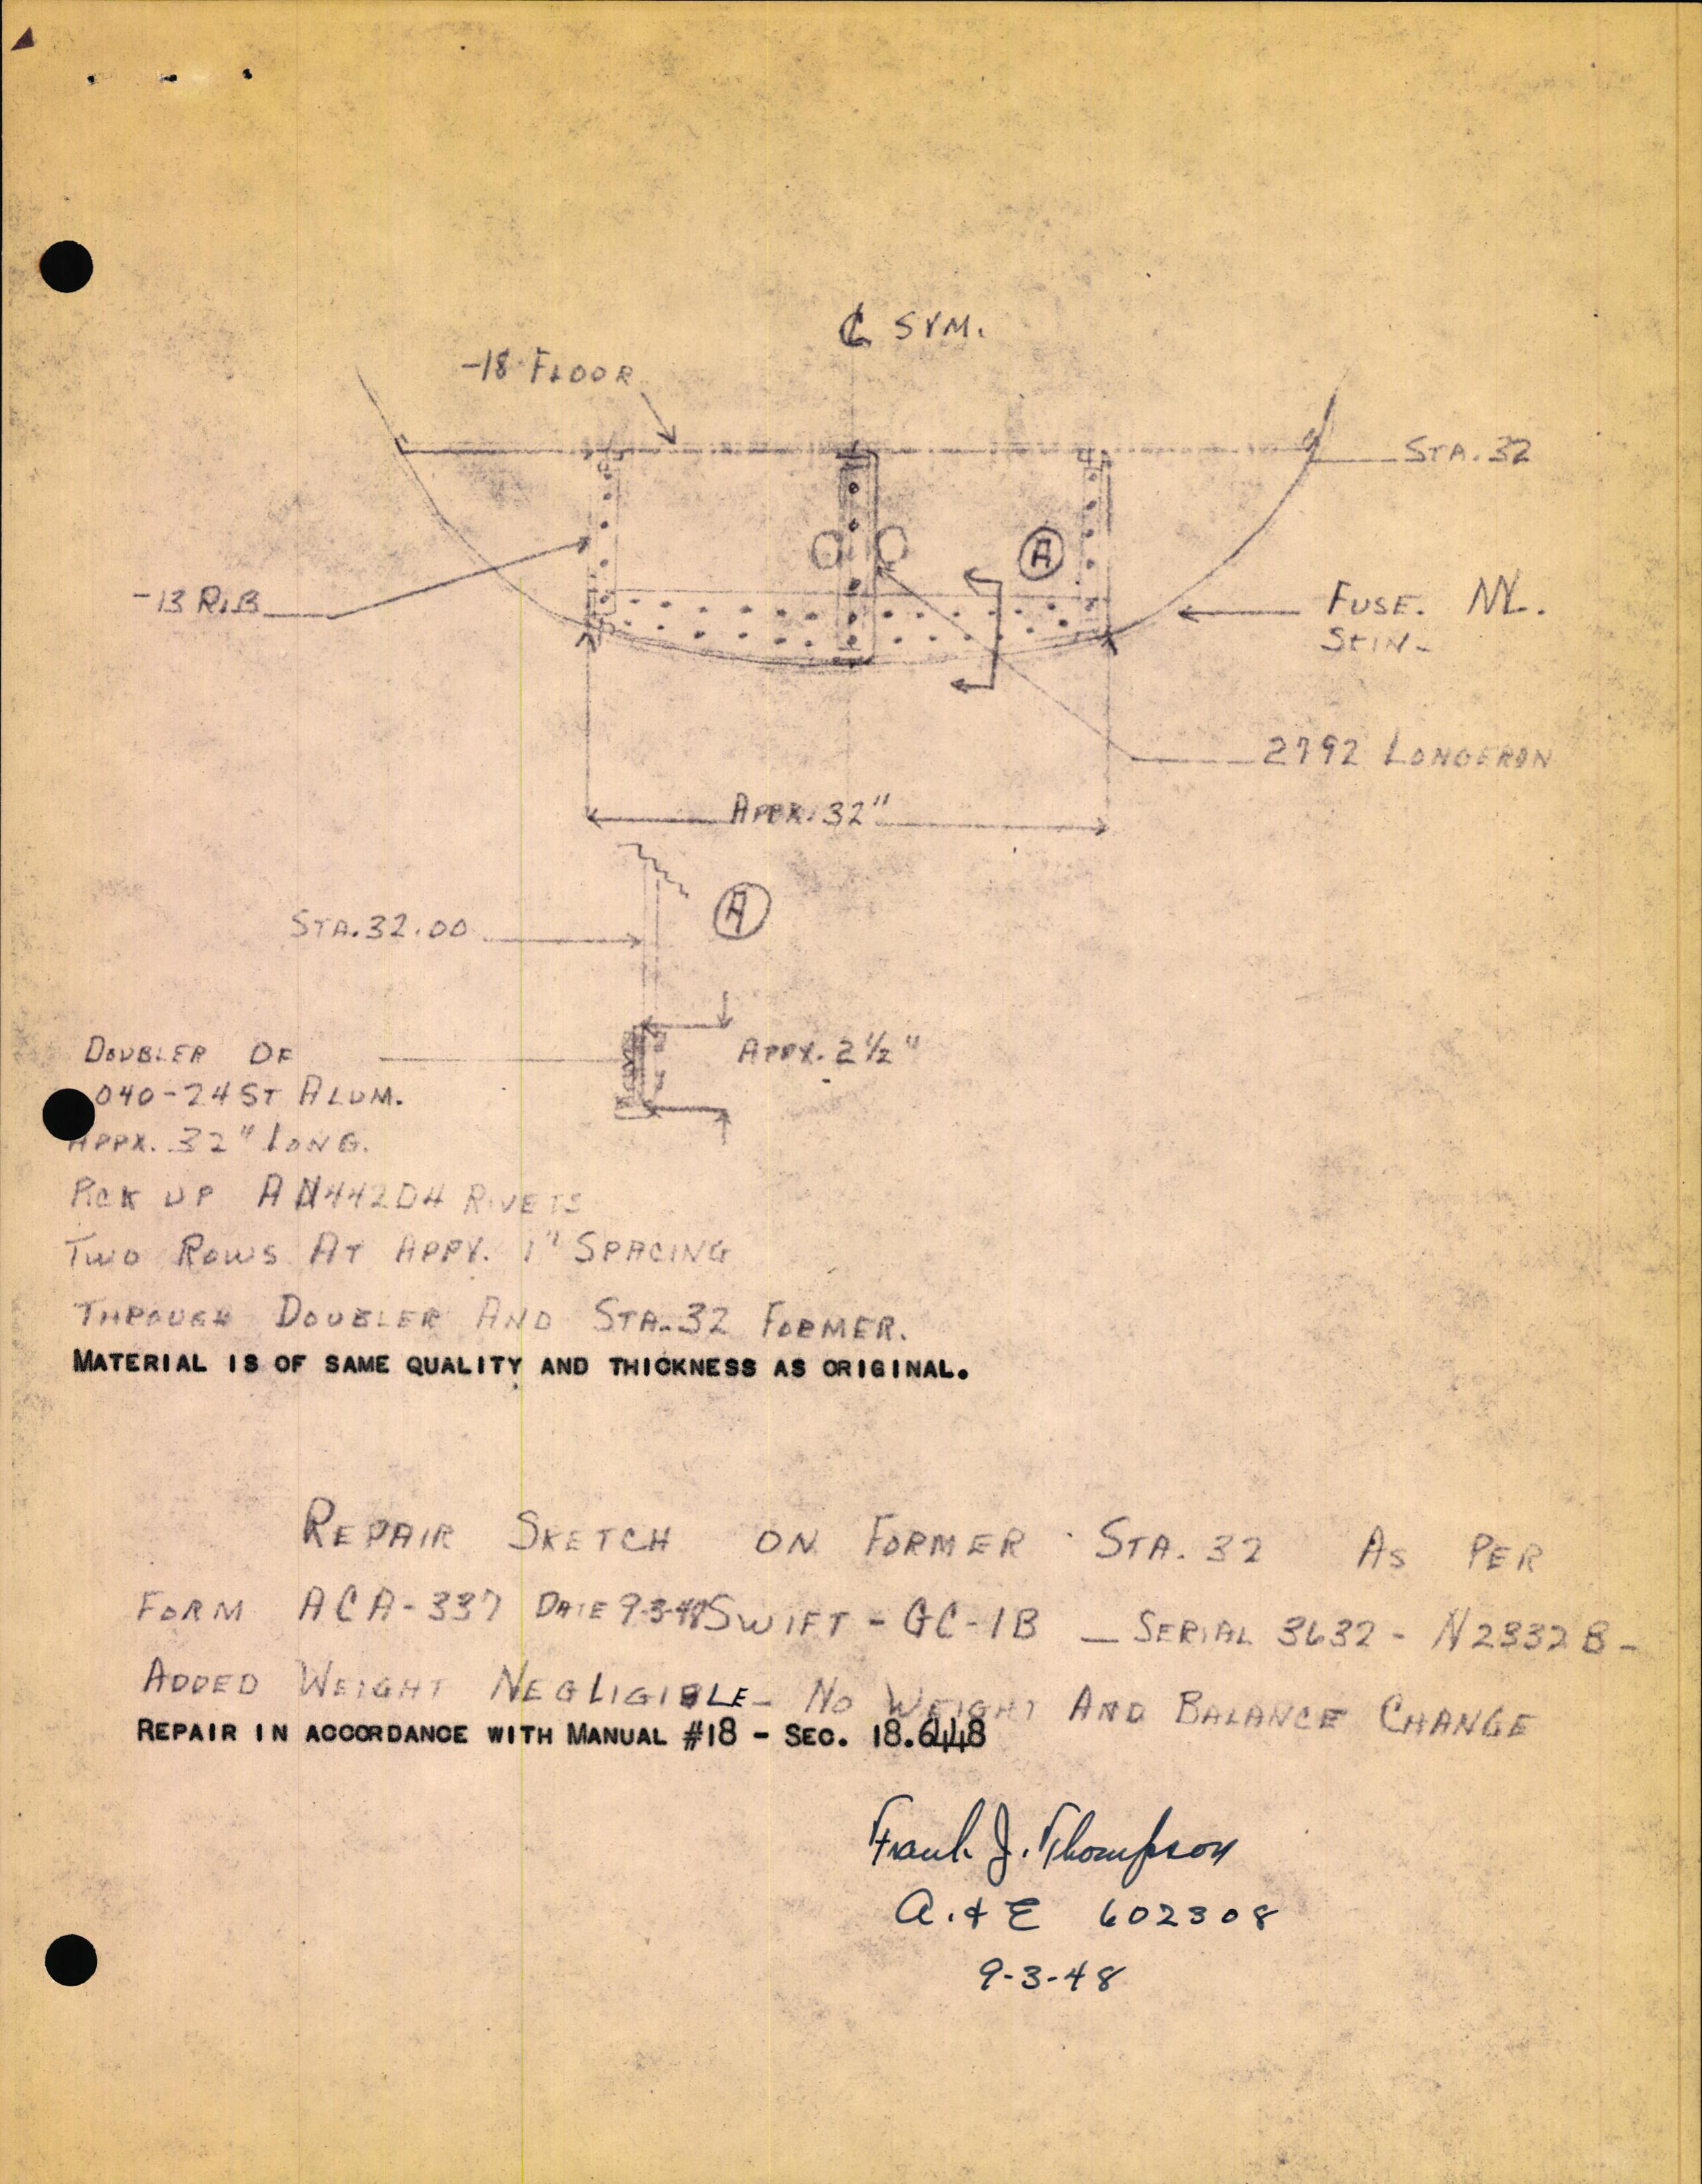 ℄ SYM.
-18 FLOOR
STA. 32
A
-13 RIB
FUSE. NL.
SKIN-
2792 LONGERON
APPX. 32"
A
STA. 32.00
DOUBLER OF
040-24ST ALUM.
APPX. 2½"
APPX. 32" LONG.
PICK UP AN442D4 RIVETS
TWO ROWS AT APPX. 1" SPACING
THROUGH DOUBLER AND STA. 32 FORMER.
MATERIAL IS OF SAME QUALITY AND THICKNESS AS ORIGINAL.
REPAIR SKETCH ON FORMER STA. 32 AS PER
FORM ACA-337 DATE 9-3-48 SWIFT - GC-1B - SERIAL 3632 - N2332B -
ADDED WEIGHT NEGLIGIBLE - NO WEIGHT AND BALANCE CHANGE
REPAIR IN ACCORDANCE WITH MANUAL #18 - SEC. 18.6448
Frank J. Thompson
A. & E 602308
9-3-48